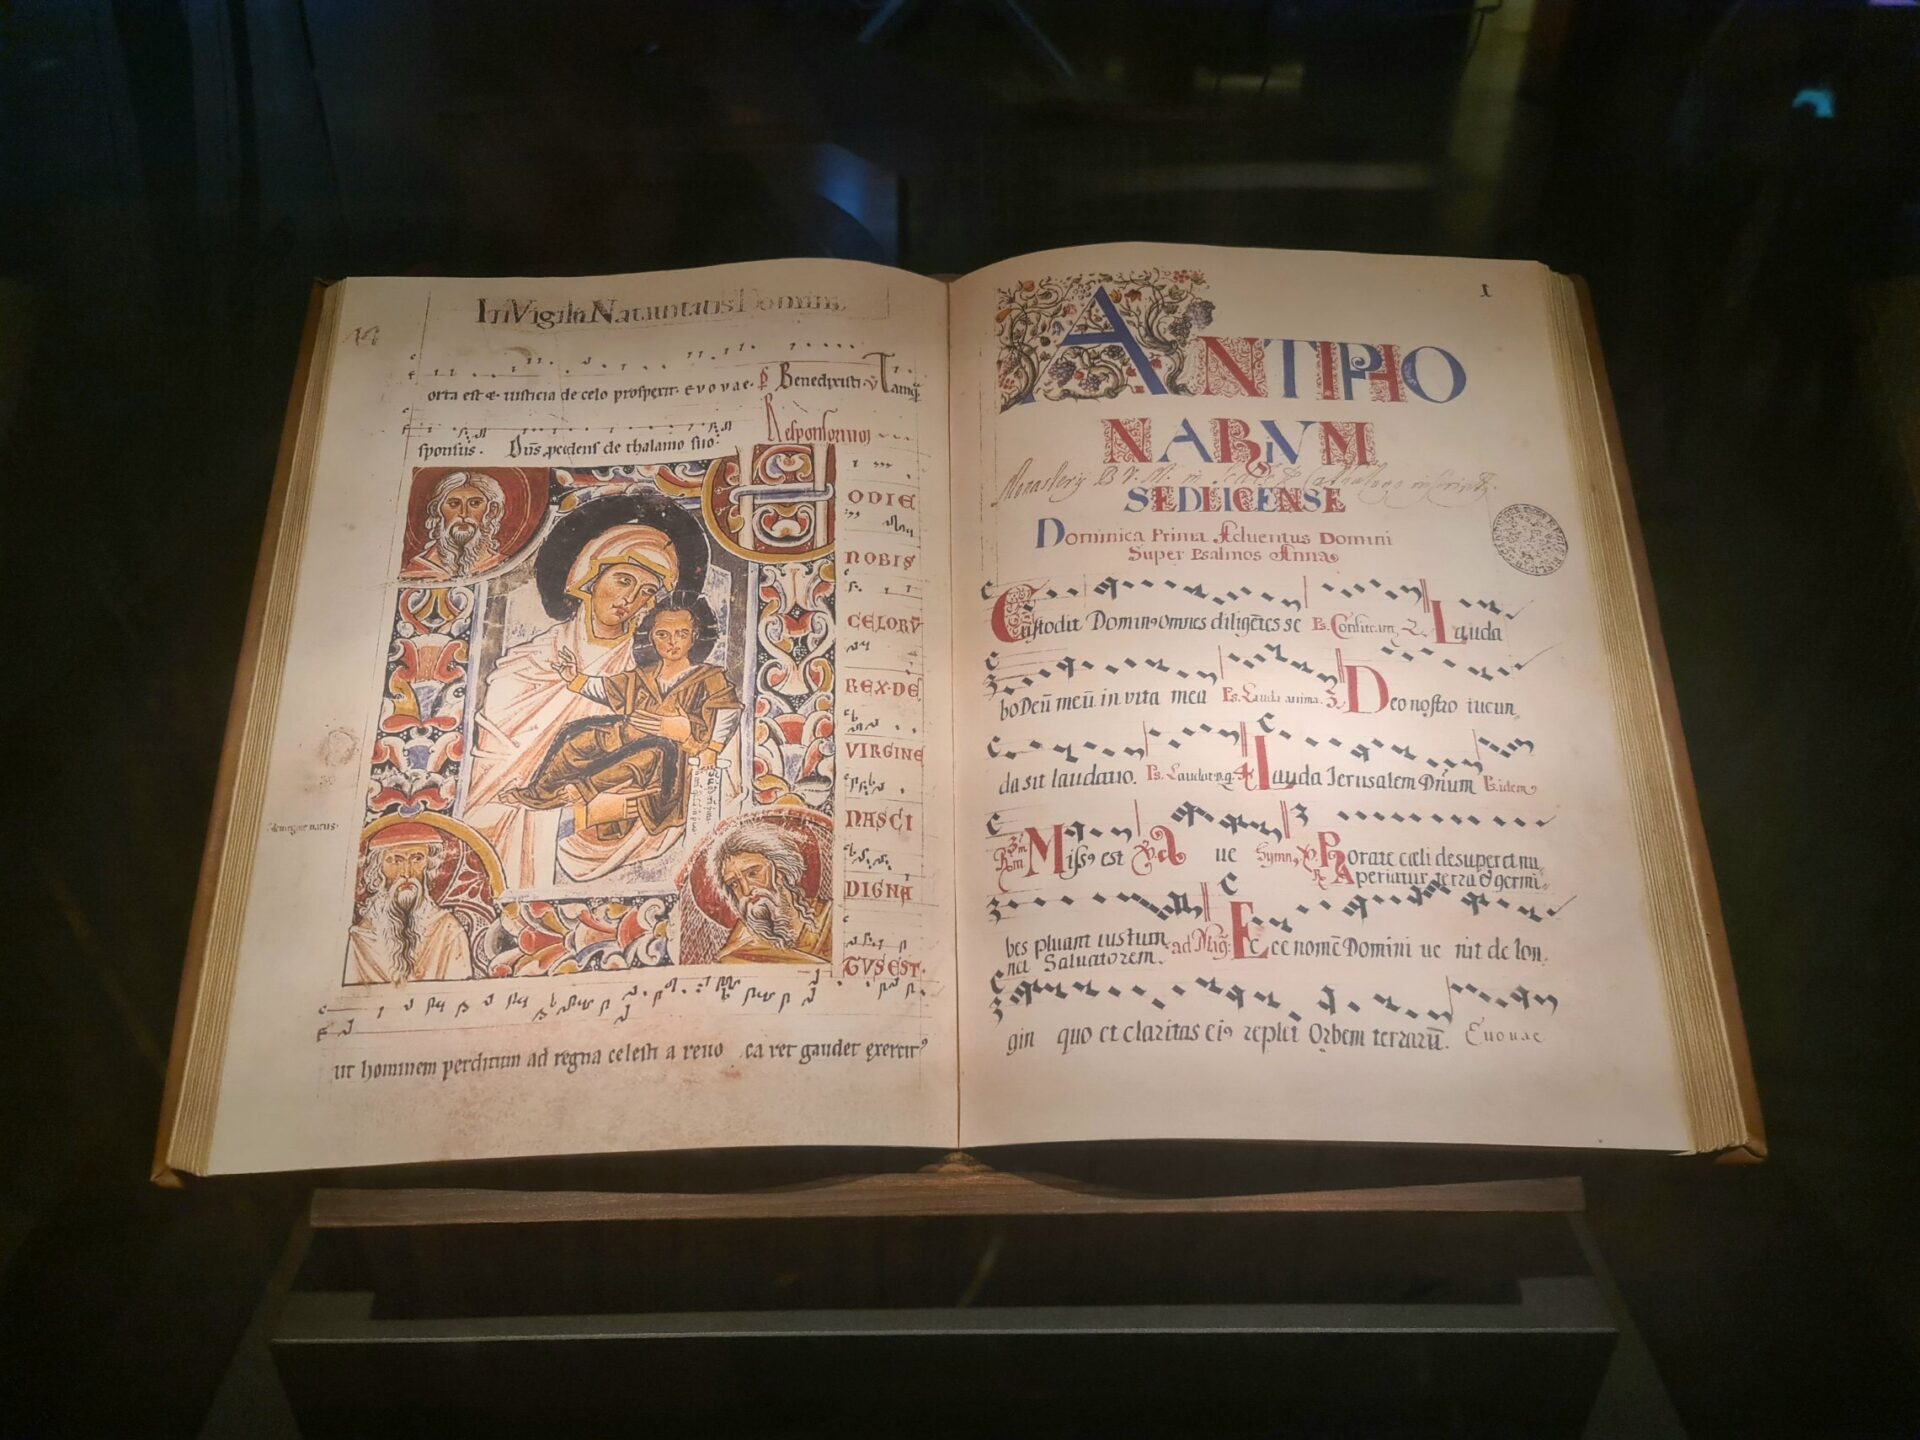 In Vigilia Natiuitatis Domini
orta est & iusticia de celo prosperit. e v o v a e. Benedixisti. Tamq̄
sponsus. Dñs p̱cedens de thalamo suo.
Responsorium
HODIE
NOBIS
CELORV̄
REX·DE
VIRGINE
NASCI
DIGNA
TVS EST·
ut hominem perditum ad regna celesti a reuo ca ret gaudet exercit᾿
1
ANTIPHO
NARVM
Monasterij B. V. M. in
SEDLICENSE
Dominica Prima Aduentus Domini
Super Psalmos Anna
Custodit Domin9 omnes diligētes se Ps. Lauda
bo Deū meū in vita mea Ps. Lauda anima. 3. Deo nostro iucun
da sit laudatio. Ps. Lauda Ierusalem Dn̄um Ps. idem
Miss9 est A ue Hymn9 Rorate cæli desuper et nu
Aperiatur terra & germi
bes pluant iustum ad Mag: Ecce nomē Domini ue nit de lon
net Saluatorem.
gin quo et claritas ei9 replet Orbem terrarū. Euouae